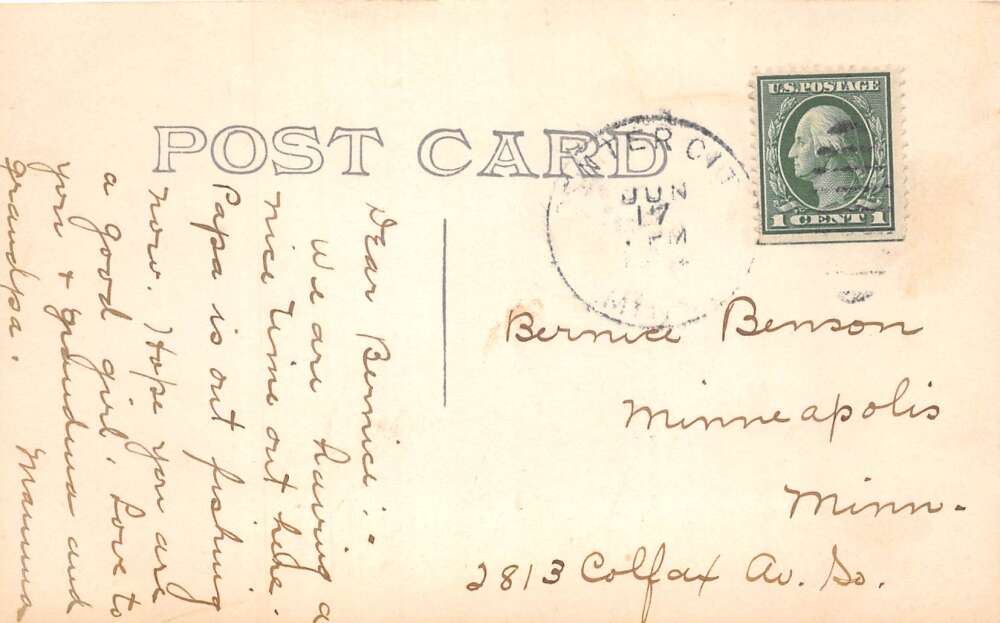 POST CARD
U.S. POSTAGE
1 CENT 1
CENTER CIT
JUN
17
PM
MIN
Dear Bernice:-
We are having a
nice time out here.
Papa is out fishing
now. Hope you are
a good girl. Love to
you + grandma and
grandpa. Mamma
Bernice Benson
Minneapolis
Minn-
2813 Colfax Av. So.